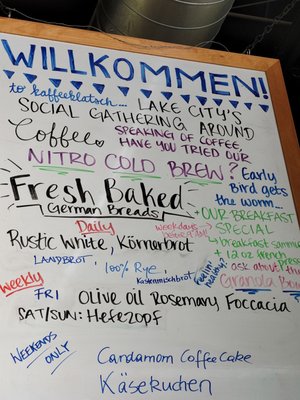 WILLKOMMEN!
to kaffeeklatsch... LAKE CITY'S
SOCIAL GATHERING AROUND
Coffee.
SPEAKING OF COFFEE,
HAVE YOU TRIED OUR
NITRO COLD BREW?
Early
Bird gets
the worm...
OUR BREAKFAST
SPECIAL
breakfast
+ 12 oz french
ask about the
Granola
Fresh Baked
German Breads
Daily
weekdays
Rustic White, Körnerbrot
LANDBROT, 100% Rye, Kastenmischbrot
Weekly
FRI Olive oil Rosemary, Foccacia
SAT/SUN: HeFezopf
WEEKENDS
ONLY
Cardamom Coffee Cake
Käsekuchen